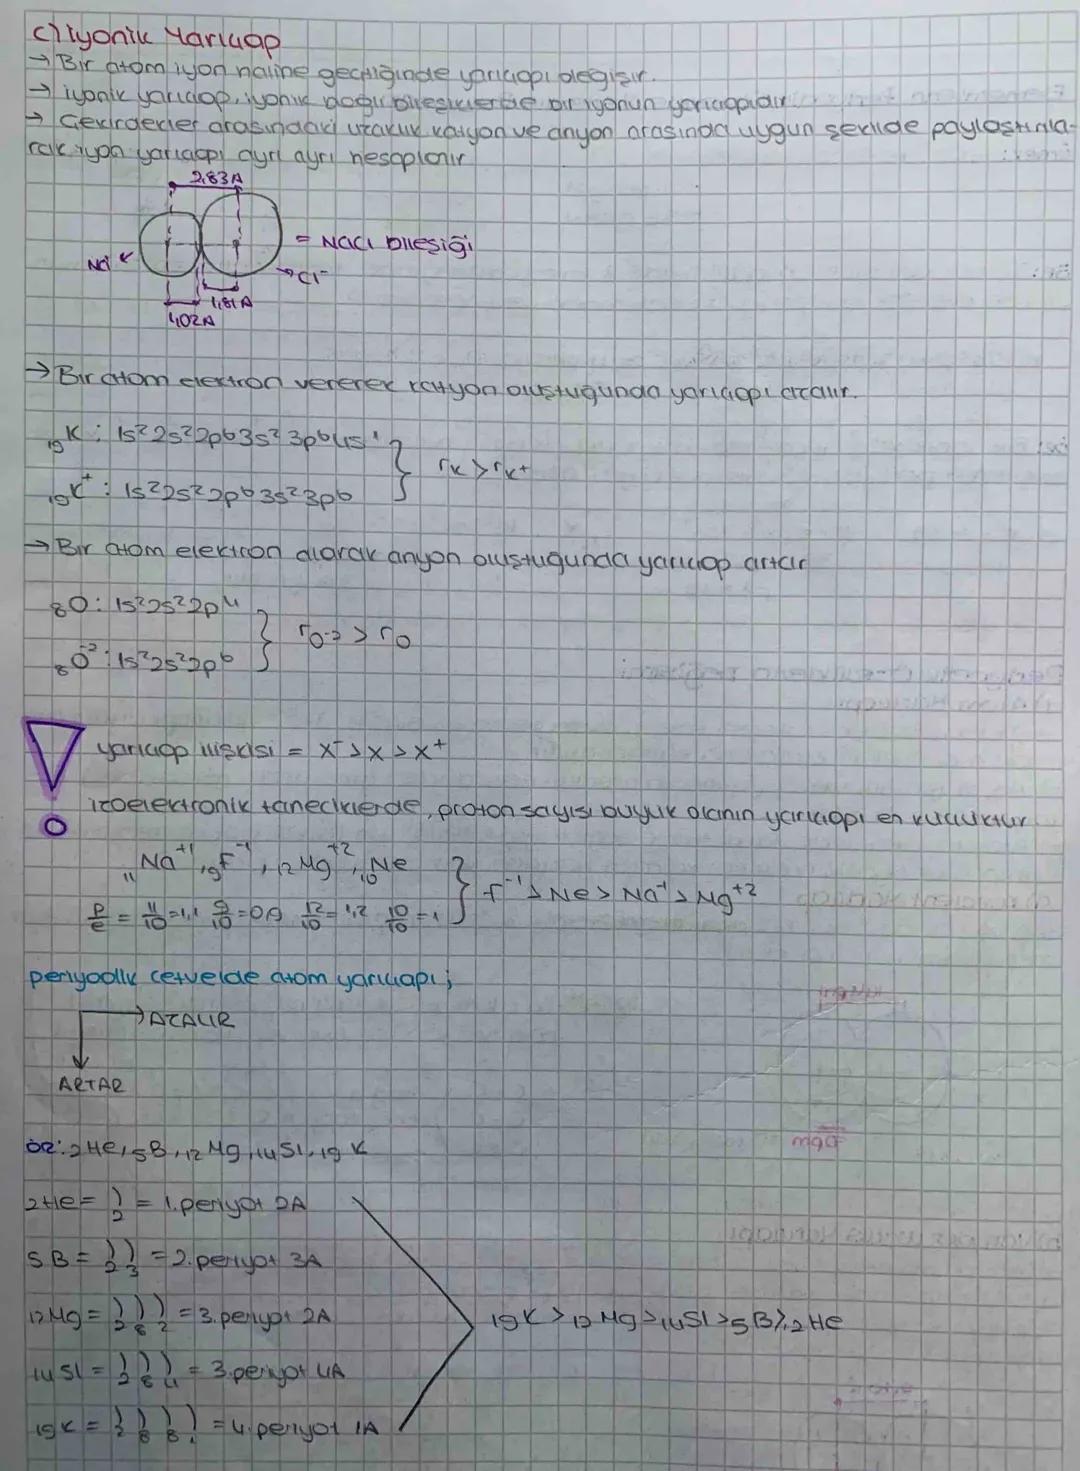 c) İyonik Yarıçap
→ Bir atom iyon haline geçtiğinde yarıçapı değişir.
→ iyonik yarıçap, iyonik bağlı bileşiklerde bir iyonun yarıçapıdır.
→ Çekirdekler arasındaki uzaklık katyon ve anyon arasında uygun şekilde paylaştırıla-
rak iyon yarıçapı ayrı ayrı hesaplanır
2,83A
= NaCl bileşiği
Na
Cl⁻
1,81A
1,02A
→ Bir atom elektron vererek katyon oluştuğunda yarıçapı azalır.
₁₉K : 1s² 2s² 2p⁶ 3s² 3p⁶ 4s¹
rK > rK⁺
₁₉K⁺ : 1s² 2s² 2p⁶ 3s² 3p⁶
→ Bir atom elektron alarak anyon oluştuğunda yarıçap artar
₈O : 1s² 2s² 2p⁴
rO⁻² > rO
₈O⁻² : 1s² 2s² 2p⁶
yarıçap ilişkisi = X⁻ > X > X⁺
izoelektronik taneciklerde, proton sayısı büyük olanın yarıçapı en küçüktür
₁₁Na⁺¹, ₁₉F⁻¹, ₁₂Mg⁺², ₁₀Ne
F⁻¹ > Ne > Na⁺¹ > Mg⁺²
p/e = 11/10 = 1,1 9/10 = 0,9 12/10 = 1,2 10/10 = 1
periyodik cetvelde atom yarıçapı ;
→ AZALIR
ARTAR
ör: ₂He, ₅B, ₁₂Mg, ₁₄Si, ₁₉K
₂He = ) 2 = 1. periyot 2A
₅B = ) ) 2 3 = 2. periyot 3A
₁₂Mg = ) ) ) 2 8 2 = 3. periyot 2A
₁₉K > ₁₂Mg > ₁₄Si > ₅B > ₂He
₁₄Si = ) ) ) 2 8 4 = 3. periyot 4A
₁₉K = ) ) ) ) 2 8 8 1 = 4. periyot 1A